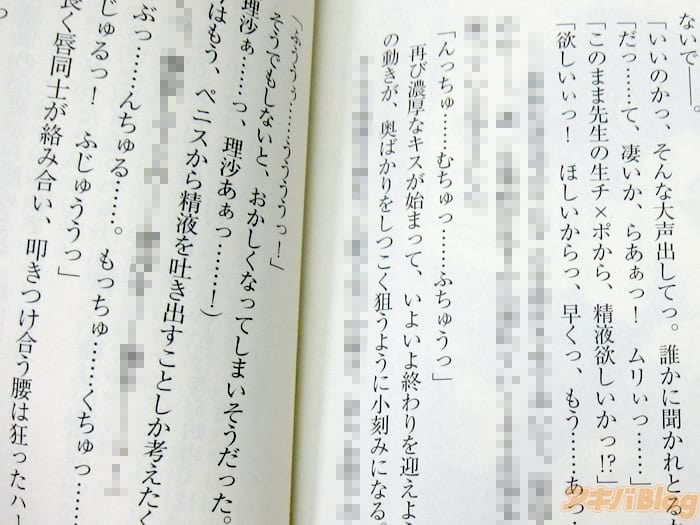 ないで――。
「いいのかっ、そんな大声出してっ。誰かに聞かれとる
「だっ……て、凄いか、らあぁっ！　ムリぃっ……」
「このまま先生の生チ×ポから、精液欲しいかっ!?」
「欲しいぃっ！　ほしいからっ、早くっ、もう……あっ
「んっちゅ……むちゅっ……ふちゅうっ」
再び濃厚なキスが始まって、いよいよ終わりを迎えよう
の動きが、奥ばかりをしつこく狙うように小刻みになる。
「ふううぅ……うううっ！」
そうでもしないと、おかしくなってしまいそうだった。
理沙ぁ……っ、理沙あぁっ……！）
はもう、ペニスから精液を吐き出すことしか考えたく
ぶっ……んちゅる……。もっちゅ……くちゅっ……
じゅるっ！　ふじゅううっ」
長く唇同士が絡み合い、叩きつけ合う腰は狂ったハー
アキバBlog